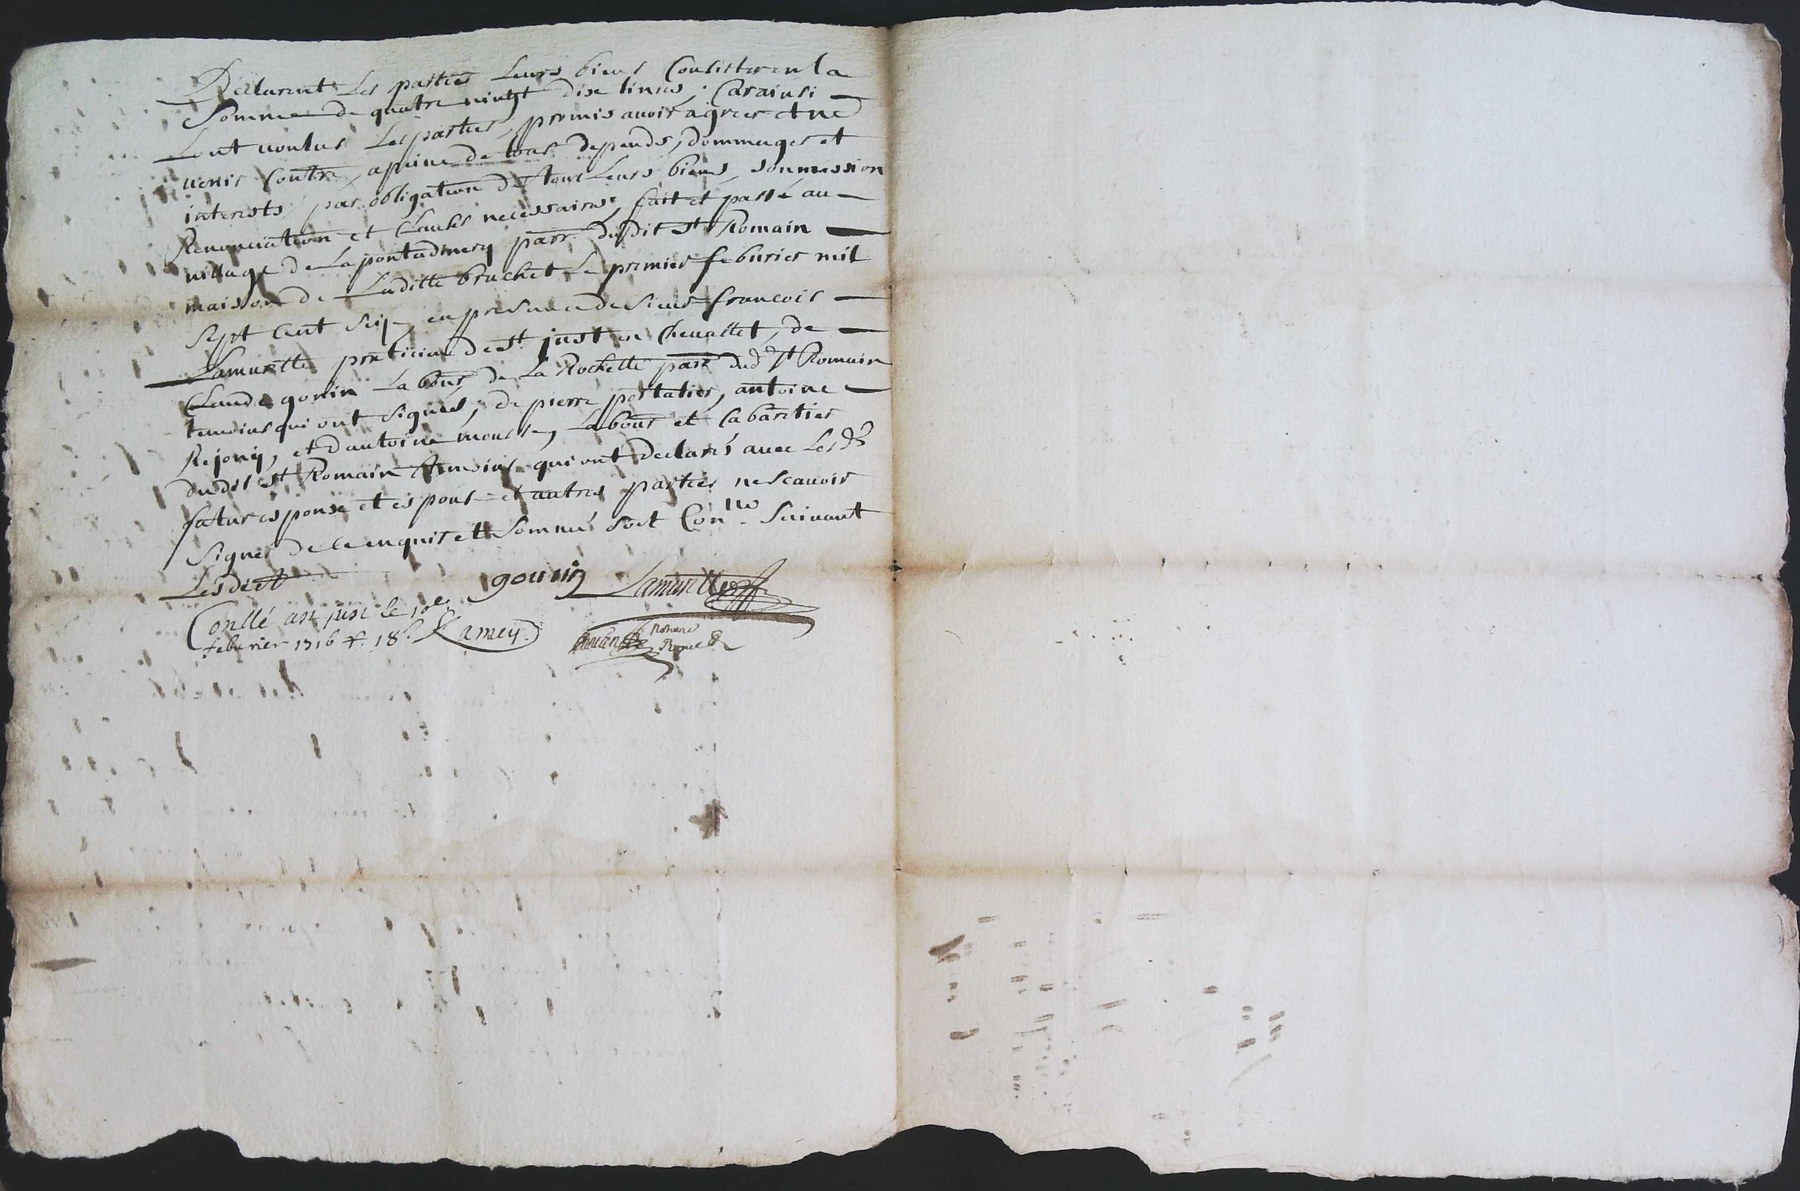 Declarent Les parties Leurs biens Consister en la
Somme de quatre vingt dix livres, Car ainsi
Lont voulus Les parties, promis avoir agreer et ne
venir Contre, a peine de tous depends, dommages et
interests par obligation de tous Leurs biens, soumission
Renonciation et Clauses necessaires, fait et passé au
village de Lapontadmery parr. dudit St Romain
maison de Laditte bruchet Le premier feburier mil
Sept Cent Seize en presence de Sieur francois
Lamurette praticien de St just en Chevallet, de
Claude gonin Labour de La Rochette parr dud. St Romain
temoins qui ont signés, de pierre portalier, antoine
Rejony, et d'antoine mousse, Labour et Cabaretier
dudit St Romain temoins qui ont declaré avec Les d.
futur esponse et espouse et autres parties ne scavoir
signer de ce enquis et Sommé soit Con.lle Suivant
Lesdict
gonin Lamurette
Conllé a st just le 1er
feburier 1716 r. 18s. Ramey